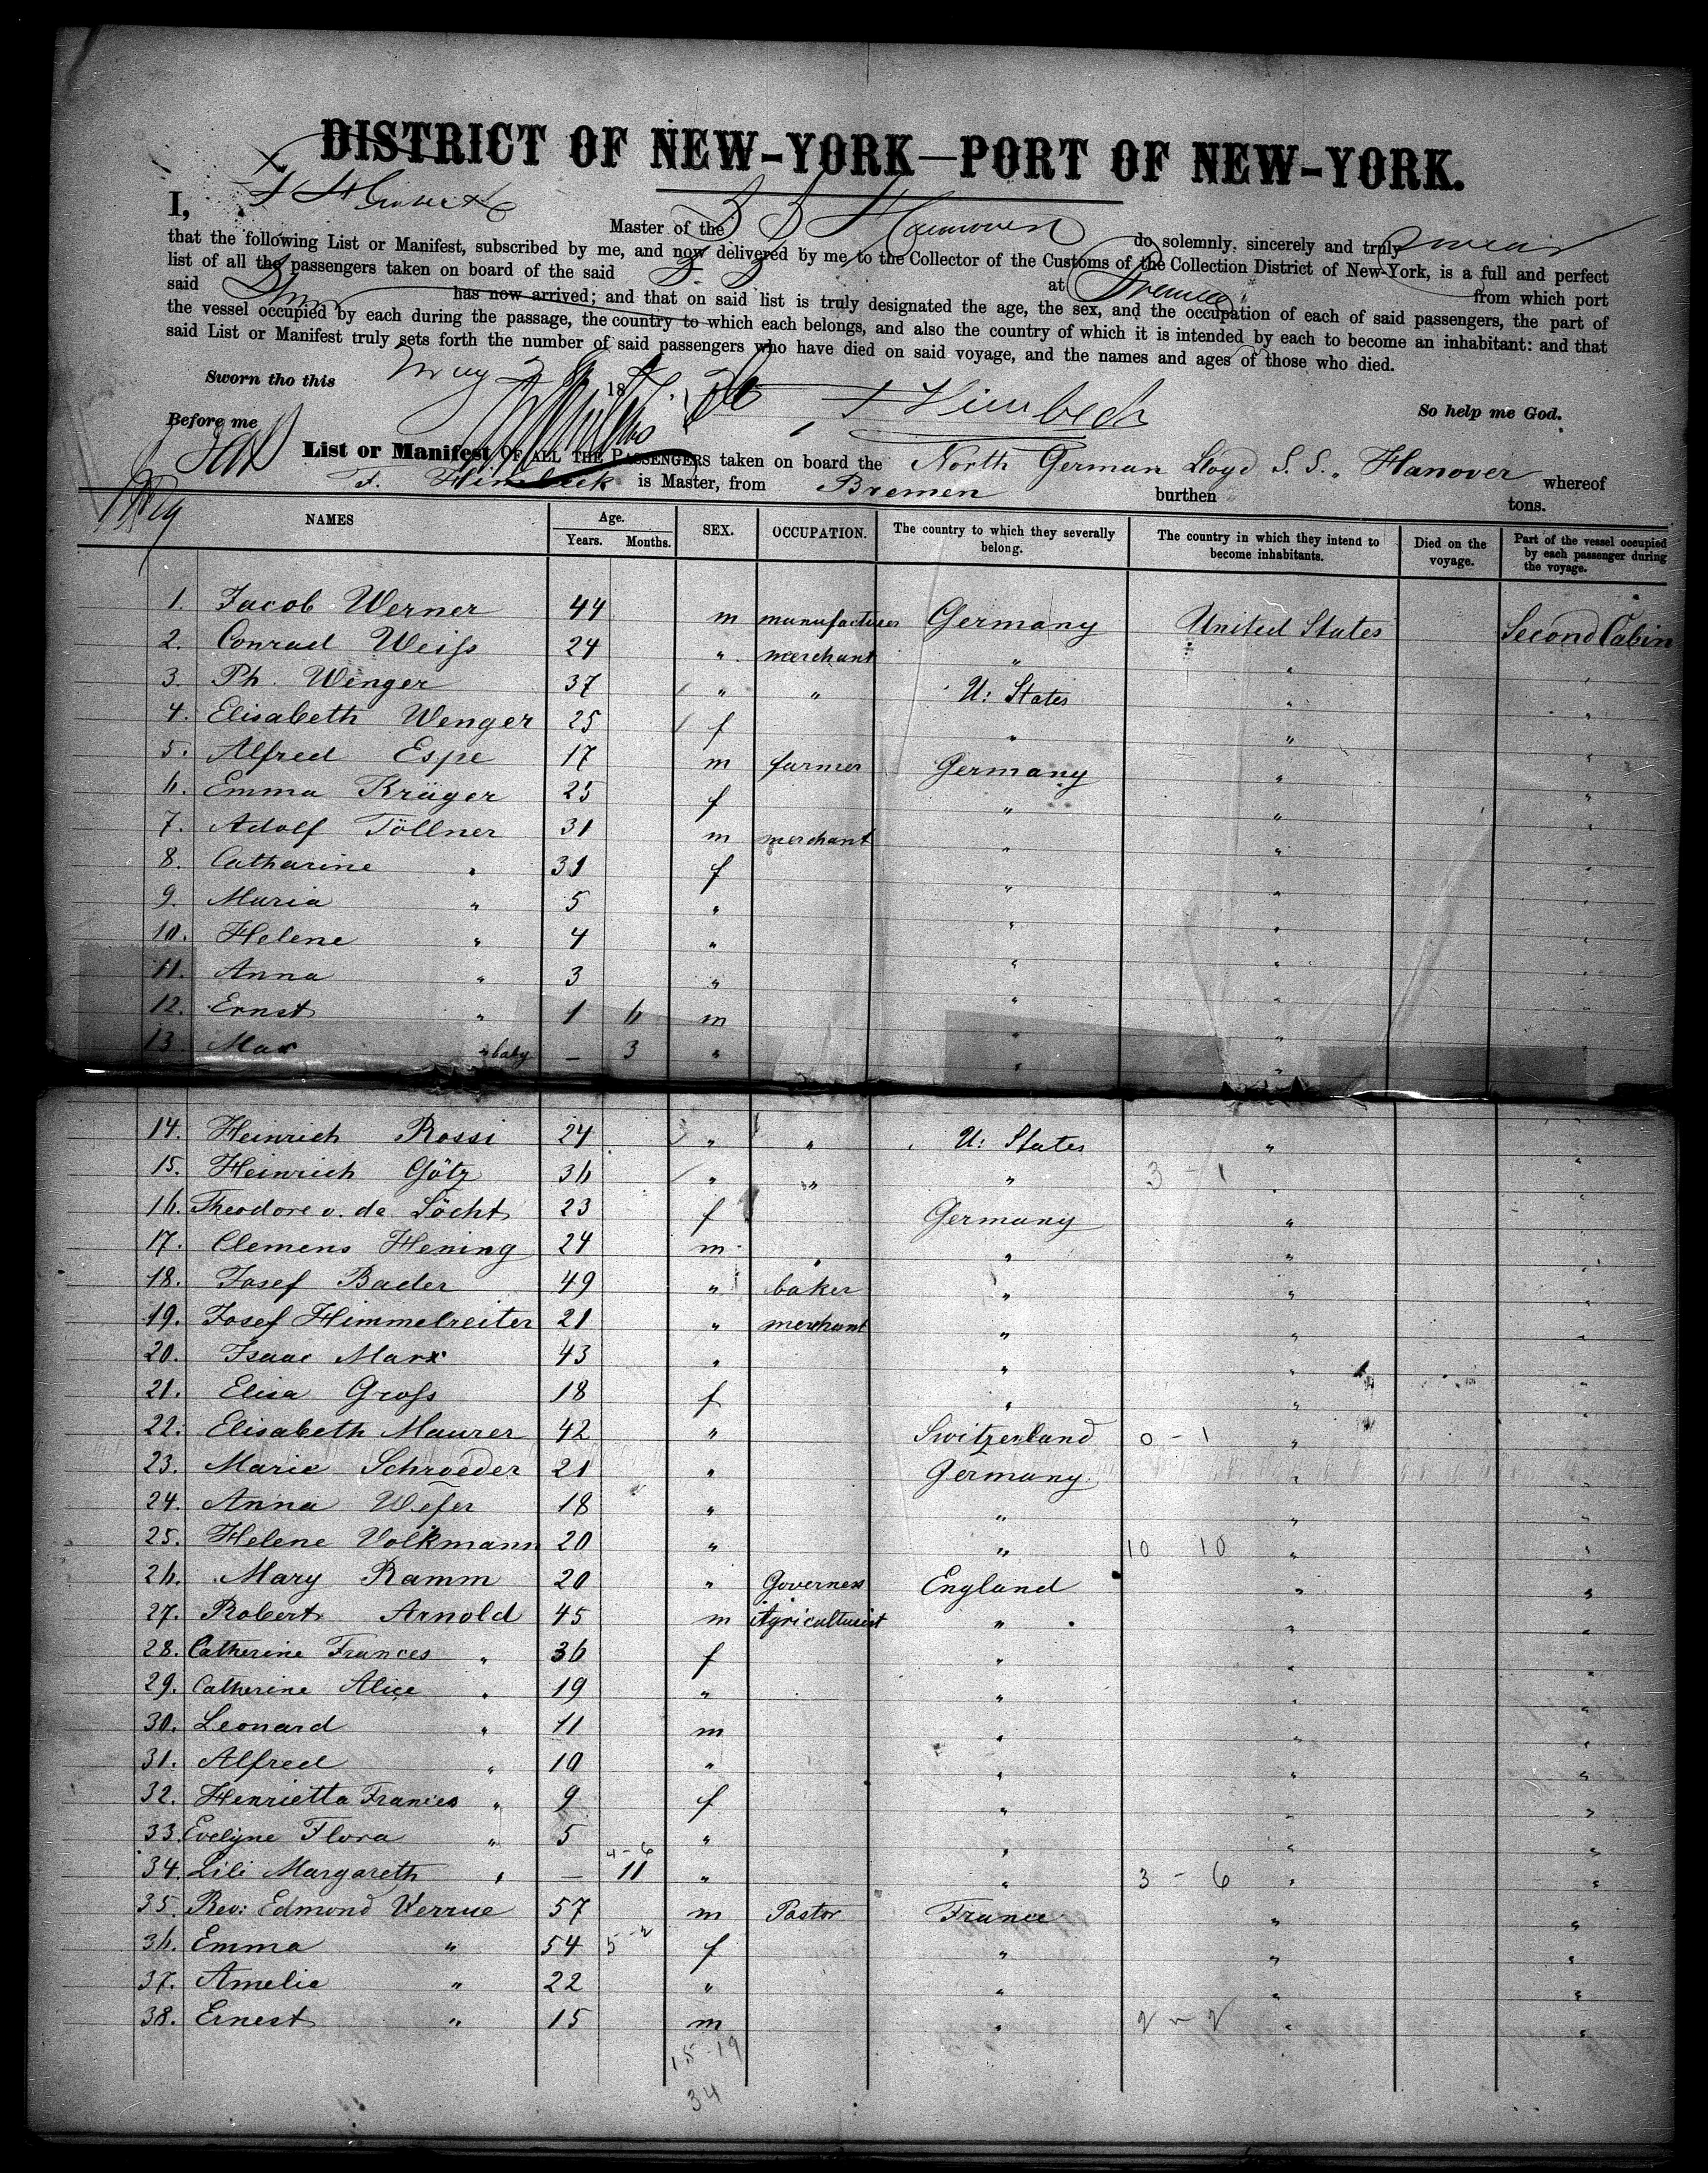 DISTRICT OF NEW-YORK—PORT OF NEW-YORK.
I, Master of the S S Hannover do solemnly, sincerely and truly swear
that the following List or Manifest, subscribed by me, and now delivered by me to the Collector of the Customs of the Collection District of New-York, is a full and perfect
list of all the passengers taken on board of the said S. S. at Bremen from which port
said has now arrived; and that on said list is truly designated the age, the sex, and the occupation of each of said passengers, the part of
the vessel occupied by each during the passage, the country to which each belongs, and also the country of which it is intended by each to become an inhabitant: and that
said List or Manifest truly sets forth the number of said passengers who have died on said voyage, and the names and ages of those who died.
Sworn tho this May 18 So help me God.
Before me
List or Manifest OF ALL THE PASSENGERS taken on board the North German Lloyd S. S. „ Hanover whereof
F. Himbeck is Master, from Bremen burthen tons.
NAMES Age. Years. Months. SEX. OCCUPATION. The country to which they severally belong. The country in which they intend to become inhabitants. Died on the voyage. Part of the vessel occupied by each passenger during the voyage.
1. Jacob Werner 44 m manufacturer Germany United States Second Cabin
2. Conrad Weiſs 24 " merchant " " "
3. Ph. Wenger 37 " " U: States " "
4. Elisabeth Wenger 25 f " " "
5. Alfred Espe 17 m farmer Germany " "
6. Emma Krüger 25 f " " "
7. Adolf Töllner 31 m merchant " " "
8. Catharine " 31 f " " "
9. Maria " 5 " " " "
10. Helene " 4 " " " "
11. Anna " 3 " " " "
12. Ernst " 1 6 m " " "
13 Max " baby — 3 " " "
14. Heinrich Rossi 24 " " U: States " "
15. Heinrich Götz 36 " " " 3 - 1 " "
16. Theodore v. de Löcht 23 f Germany " "
17. Clemens Hening 24 m " " " "
18. Josef Bader 49 " baker " " "
19. Josef Himmelreiter 21 " merchant " " "
20. Isaac Marx 43 " " " "
21. Elisa Groſs 18 f " " "
22. Elisabeth Maurer 42 " Switzerland 0 - 1 " "
23. Marie Schroeder 21 " Germany " "
24. Anna Wefer 18 " " " "
25. Helene Volkmann 20 " " 10 10 " "
26. Mary Ramm 20 " Governess England " "
27. Robert Arnold 45 m Agriculturist " " "
28. Catherine Frances " 36 f " " "
29. Catherine Alice " 19 " " " "
30. Leonard " 11 m " " "
31. Alfred " 10 " " " "
32. Henrietta Frances " 9 f " " "
33. Evelyne Flora " 5 " " " "
4 - 6
34. Lili Margareth " — 11 " " 3 - 6 " "
35. Rev: Edmond Verrue 57 m Pastor France " "
36. Emma " 54 5 - 2 f " " "
37. Amelie " 22 " " " "
38. Ernest " 15 m " 2 - 2 " "
15 - 19
34